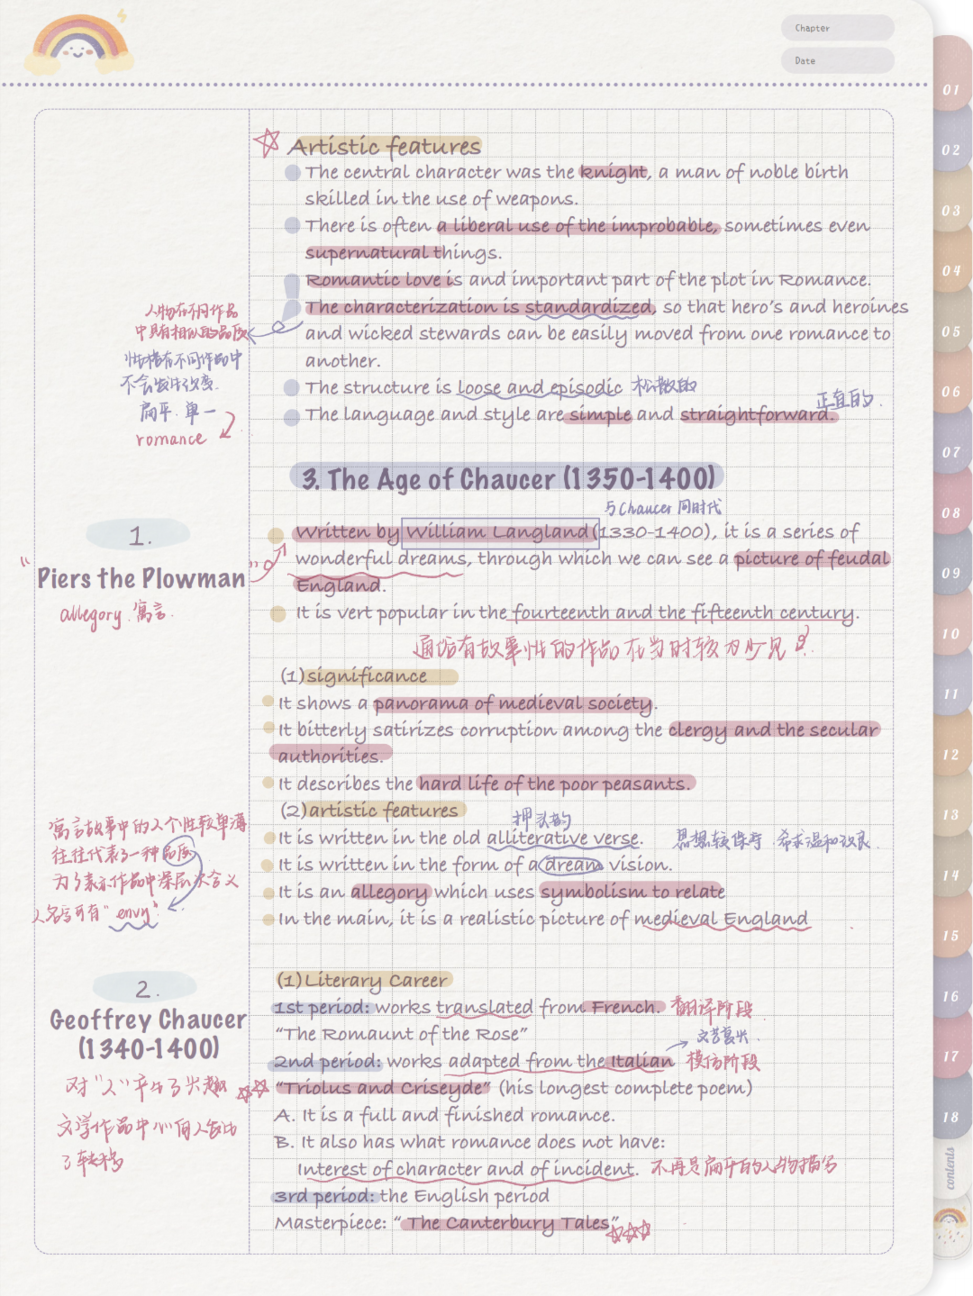 Chapter
Date
Artistic features
The central character was the knight, a man of noble birth
skilled in the use of weapons.
There is often a liberal use of the improbable, sometimes even
supernatural things.
Romantic love is and important part of the plot in Romance.
The characterization is standardized, so that hero's and heroines
and wicked stewards can be easily moved from one romance to
another.
The structure is loose and episodic 松散的
The language and style are simple and straightforward.
正直的.
人物在不同作品
中具有相似的品质
性格在不同作品中
不会发生改变.
扁平.单一
romance
3. The Age of Chaucer (1350-1400)
与Chaucer 同时代
1.
"Piers the Plowman"
allegory.寓言.
Written by William Langland (1330-1400), it is a series of
wonderful dreams, through which we can see a picture of feudal
England.
It is vert popular in the fourteenth and the fifteenth century.
有故事性的作品在当时较为少见
(1)significance
It shows a panorama of medieval society.
It bitterly satirizes corruption among the clergy and the secular
authorities.
It describes the hard life of the poor peasants.
(2)artistic features
押头的
It is written in the old alliterative verse.
思想较保守 希求温和改良.
It is written in the form of a dream vision.
It is an allegory which uses symbolism to relate
In the main, it is a realistic picture of medieval England
寓言故事中的人个性较单薄
往往代表了一种品质
为了表示作品中深层次含义
人名言可有"envy"
2.
Geoffrey Chaucer
(1340-1400)
对"人"产生了兴趣
文学作品中心向人发出
了转移
(1)Literary Career
1st period: works translated from French. 翻译阶段
"The Romaunt of the Rose"
文艺复兴.
2nd period: works adapted from the Italian 模仿阶段
"Triolus and Criseyde" (his longest complete poem)
A. It is a full and finished romance.
B. It also has what romance does not have:
Interest of character and of incident. 不再是扁平的人物描写
3rd period: the English period
Masterpiece: " The Canterbury Tales"
01
02
03
04
05
06
07
08
09
10
11
12
13
14
15
16
17
18
contents